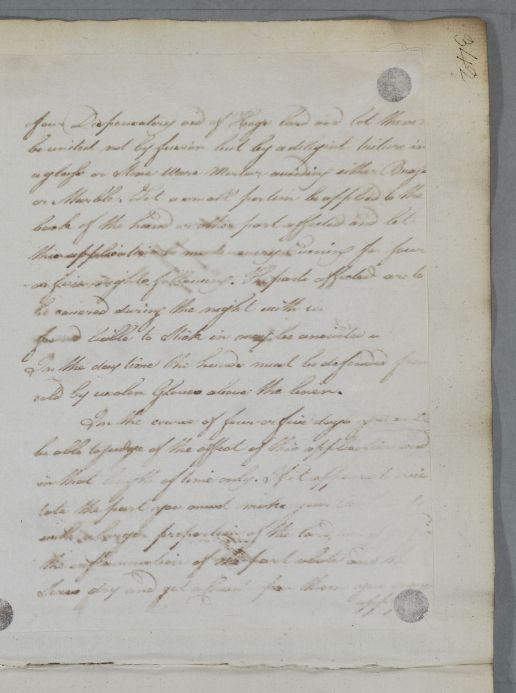 342
four Dispensatory and of Hogs lard and let them
be united not by fusion but by a diligent triture in
a glass or Stone Ware Mortar avoiding either Brass
or Marble. Let a small portion be applied to the
back of the hand or other part affected and let
this application be made every Evening for four
or five nights following. The parts affected are to
be covered during the night with
found liable to Stick in may be anointed
In the day time the hands must be defended from
cold by woolen Gloves above the linen.
In the course of four or five days you will
be able to judge of the effect of this application and
in that length of time only. If it appears to irri
tate the part you must make your
with a larger proportion of the lard,
the inflammation of the part abate and the
Sores dry and yet from them you may